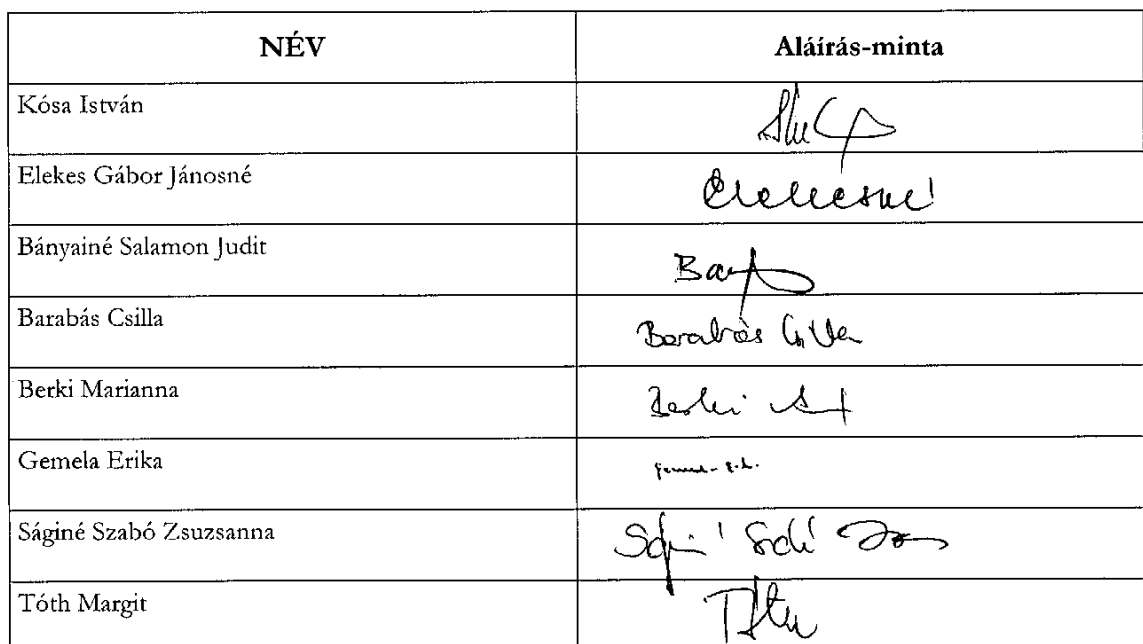 NÉV Aláírás-minta
Kósa István
Elekes Gábor Jánosné Elekesné
Bányainé Salamon Judit
Barabás Csilla Barabás Csilla
Berki Marianna Berki
Gemela Erika
Ságiné Szabó Zsuzsanna
Tóth Margit